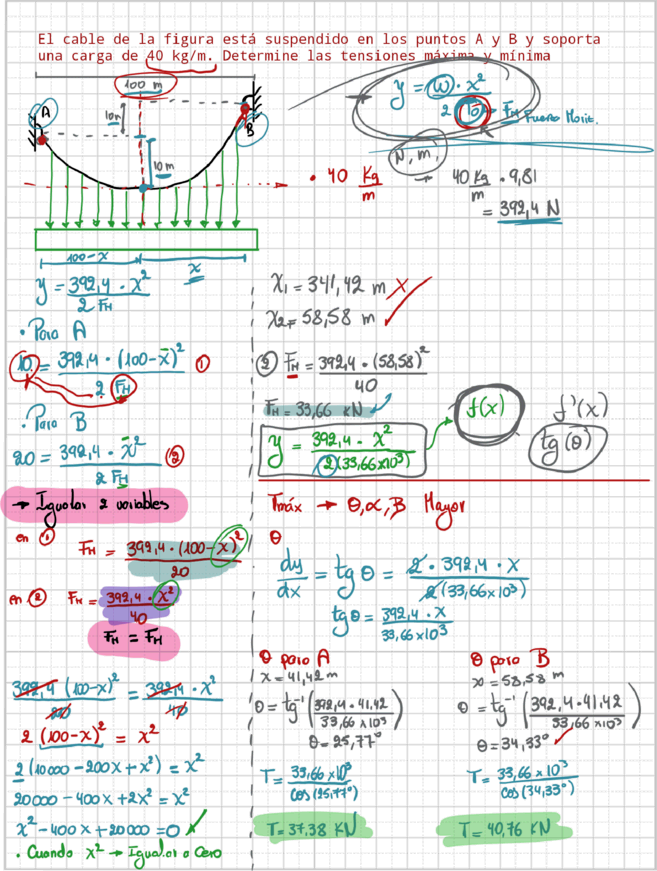 El cable de la figura está suspendido en los puntos A y B y soporta
una carga de 40 kg/m. Determine las tensiones máxima y mínima
100 m
A
10m
B
10m
100-x
x
y = ω · x² / 2 To → FH Fuerza Horiz.
N, m.
• 40 Kg/m → 40 Kg/m · 9,81
= 392,4 N
y = 392,4 · x² / 2 FH
• Para A
10 = 392,4 · (100-x)² / 2 FH ①
• Para B
20 = 392,4 · x² / 2 FH ②
→ Igualar 2 variables
en ① FH = 392,4 · (100-x)² / 20
en ② FH = 392,4 · x² / 40
FH = FH
392,4 (100-x)² / 20 = 392,4 · x² / 40
2 (100-x)² = x²
2(10000-200x+x²) = x²
20000-400x+2x² = x²
x²-400x+20000=0 ✓
• Cuando x² → Igualar a Cero
x₁ = 341,42 m X
x₂ = 58,58 m ✓
② FH = 392,4 · (58,58)² / 40
FH = 33,66 KN
y = 392,4 · x² / 2(33,66x10³)
f(x)
f'(x)
tg(θ)
Tmáx → θ,α,β Mayor
θ
dy/dx = tg θ = 2 · 392,4 · x / 2(33,66x10³)
tgθ = 392,4 · x / 33,66x10³
θ para A
x = 41,42 m
θ = tg⁻¹ (392,4 · 41,42 / 33,66x10³)
θ = 25,77°
T = 33,66 x10³ / cos(25,77°)
T = 37,38 KN
θ para B
x = 58,58 m
θ = tg⁻¹ (392,4 · 41,42 / 33,66 x10³)
θ = 34,33° ✓
T = 33,66 x 10³ / cos(34,33°)
T = 40,76 KN